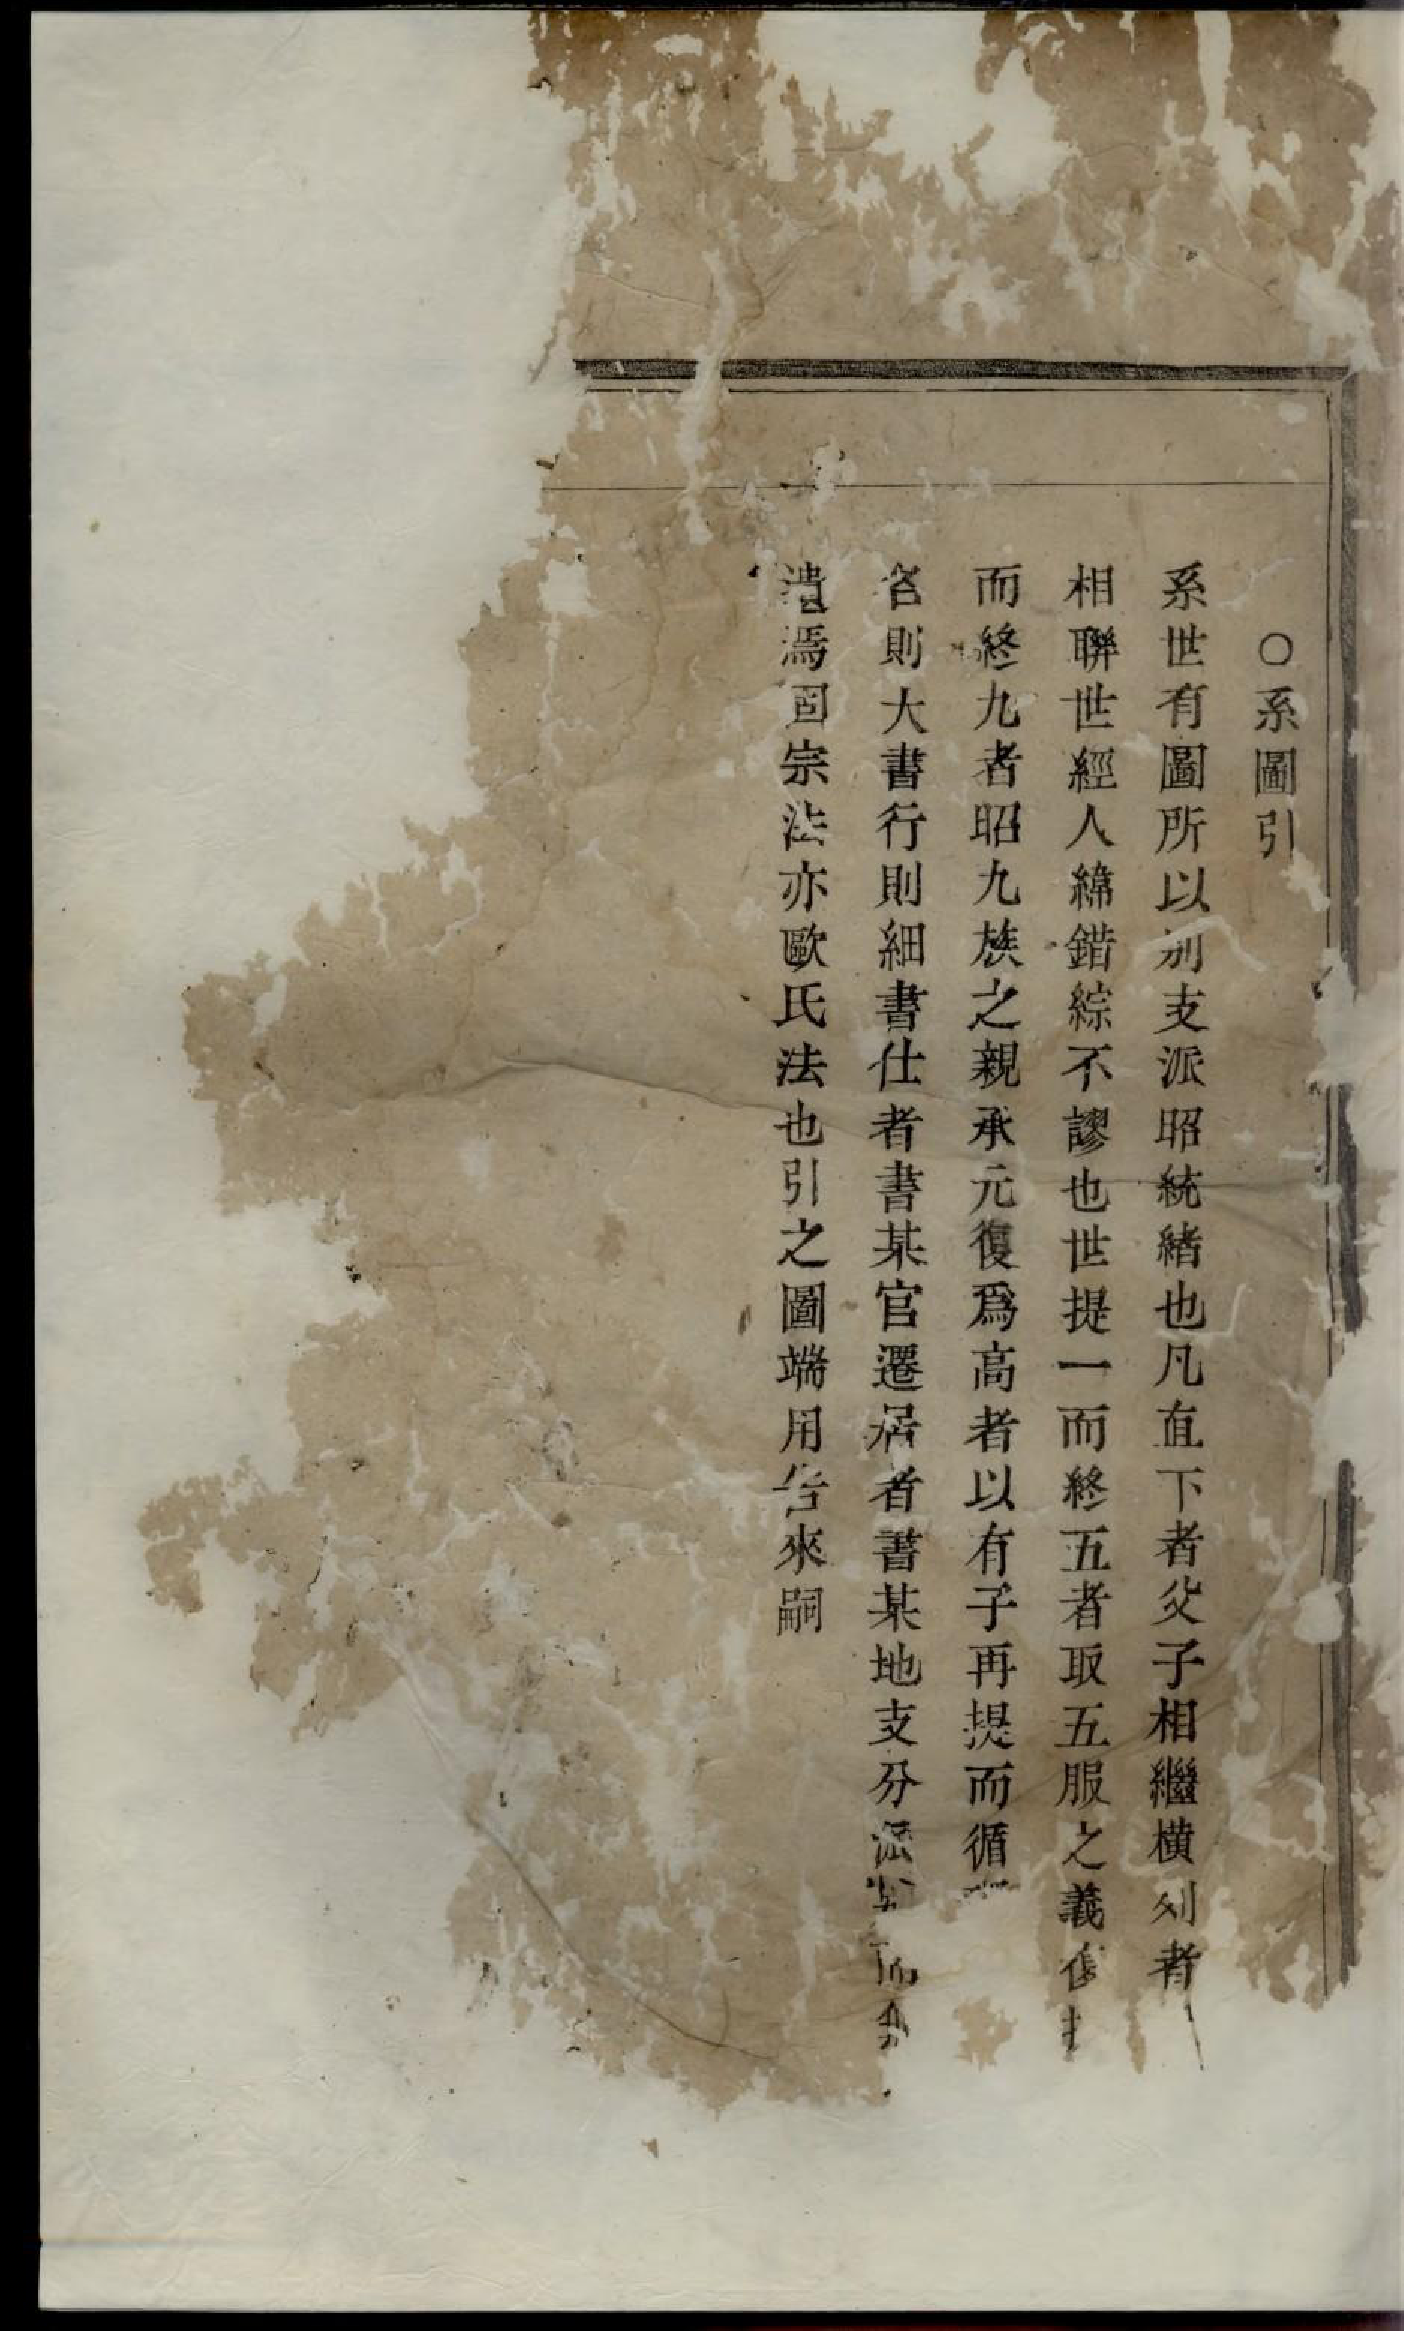 ○系圖引
系世有圖所以别支派昭統緒也凡直下者父子相繼橫列者
相聯世經人緯錯綜不謬也世提一而終五者取五服之義
而終九者昭九族之親承元復爲高者以有子再提而循
名則大書行則細書仕者書某官遷居者書某地支分派
遺焉固宗法亦歐氏法也引之圖端用告來嗣